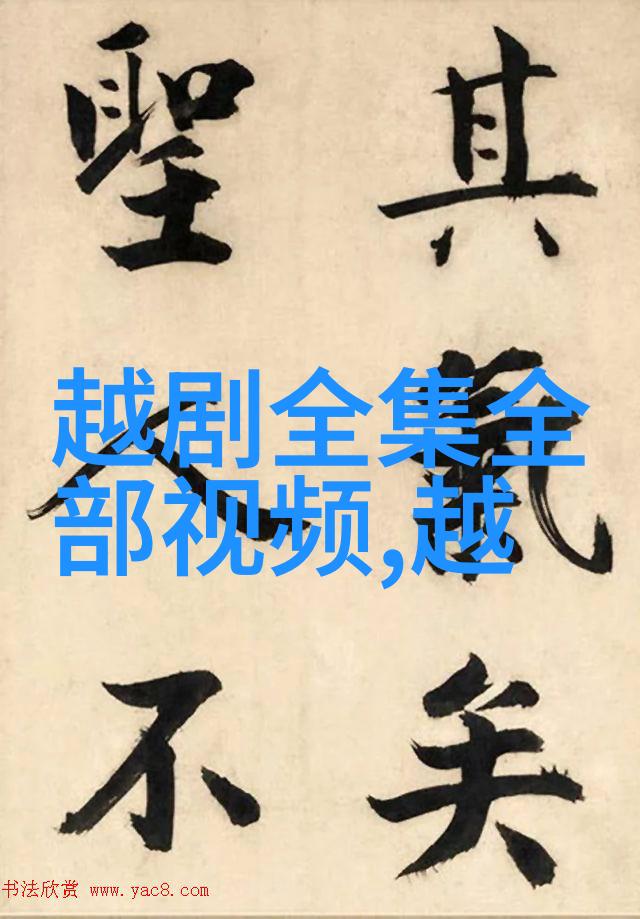 其 矣
聖人不
越剧全集全
部视频,越
书法欣赏 www.yac8.com